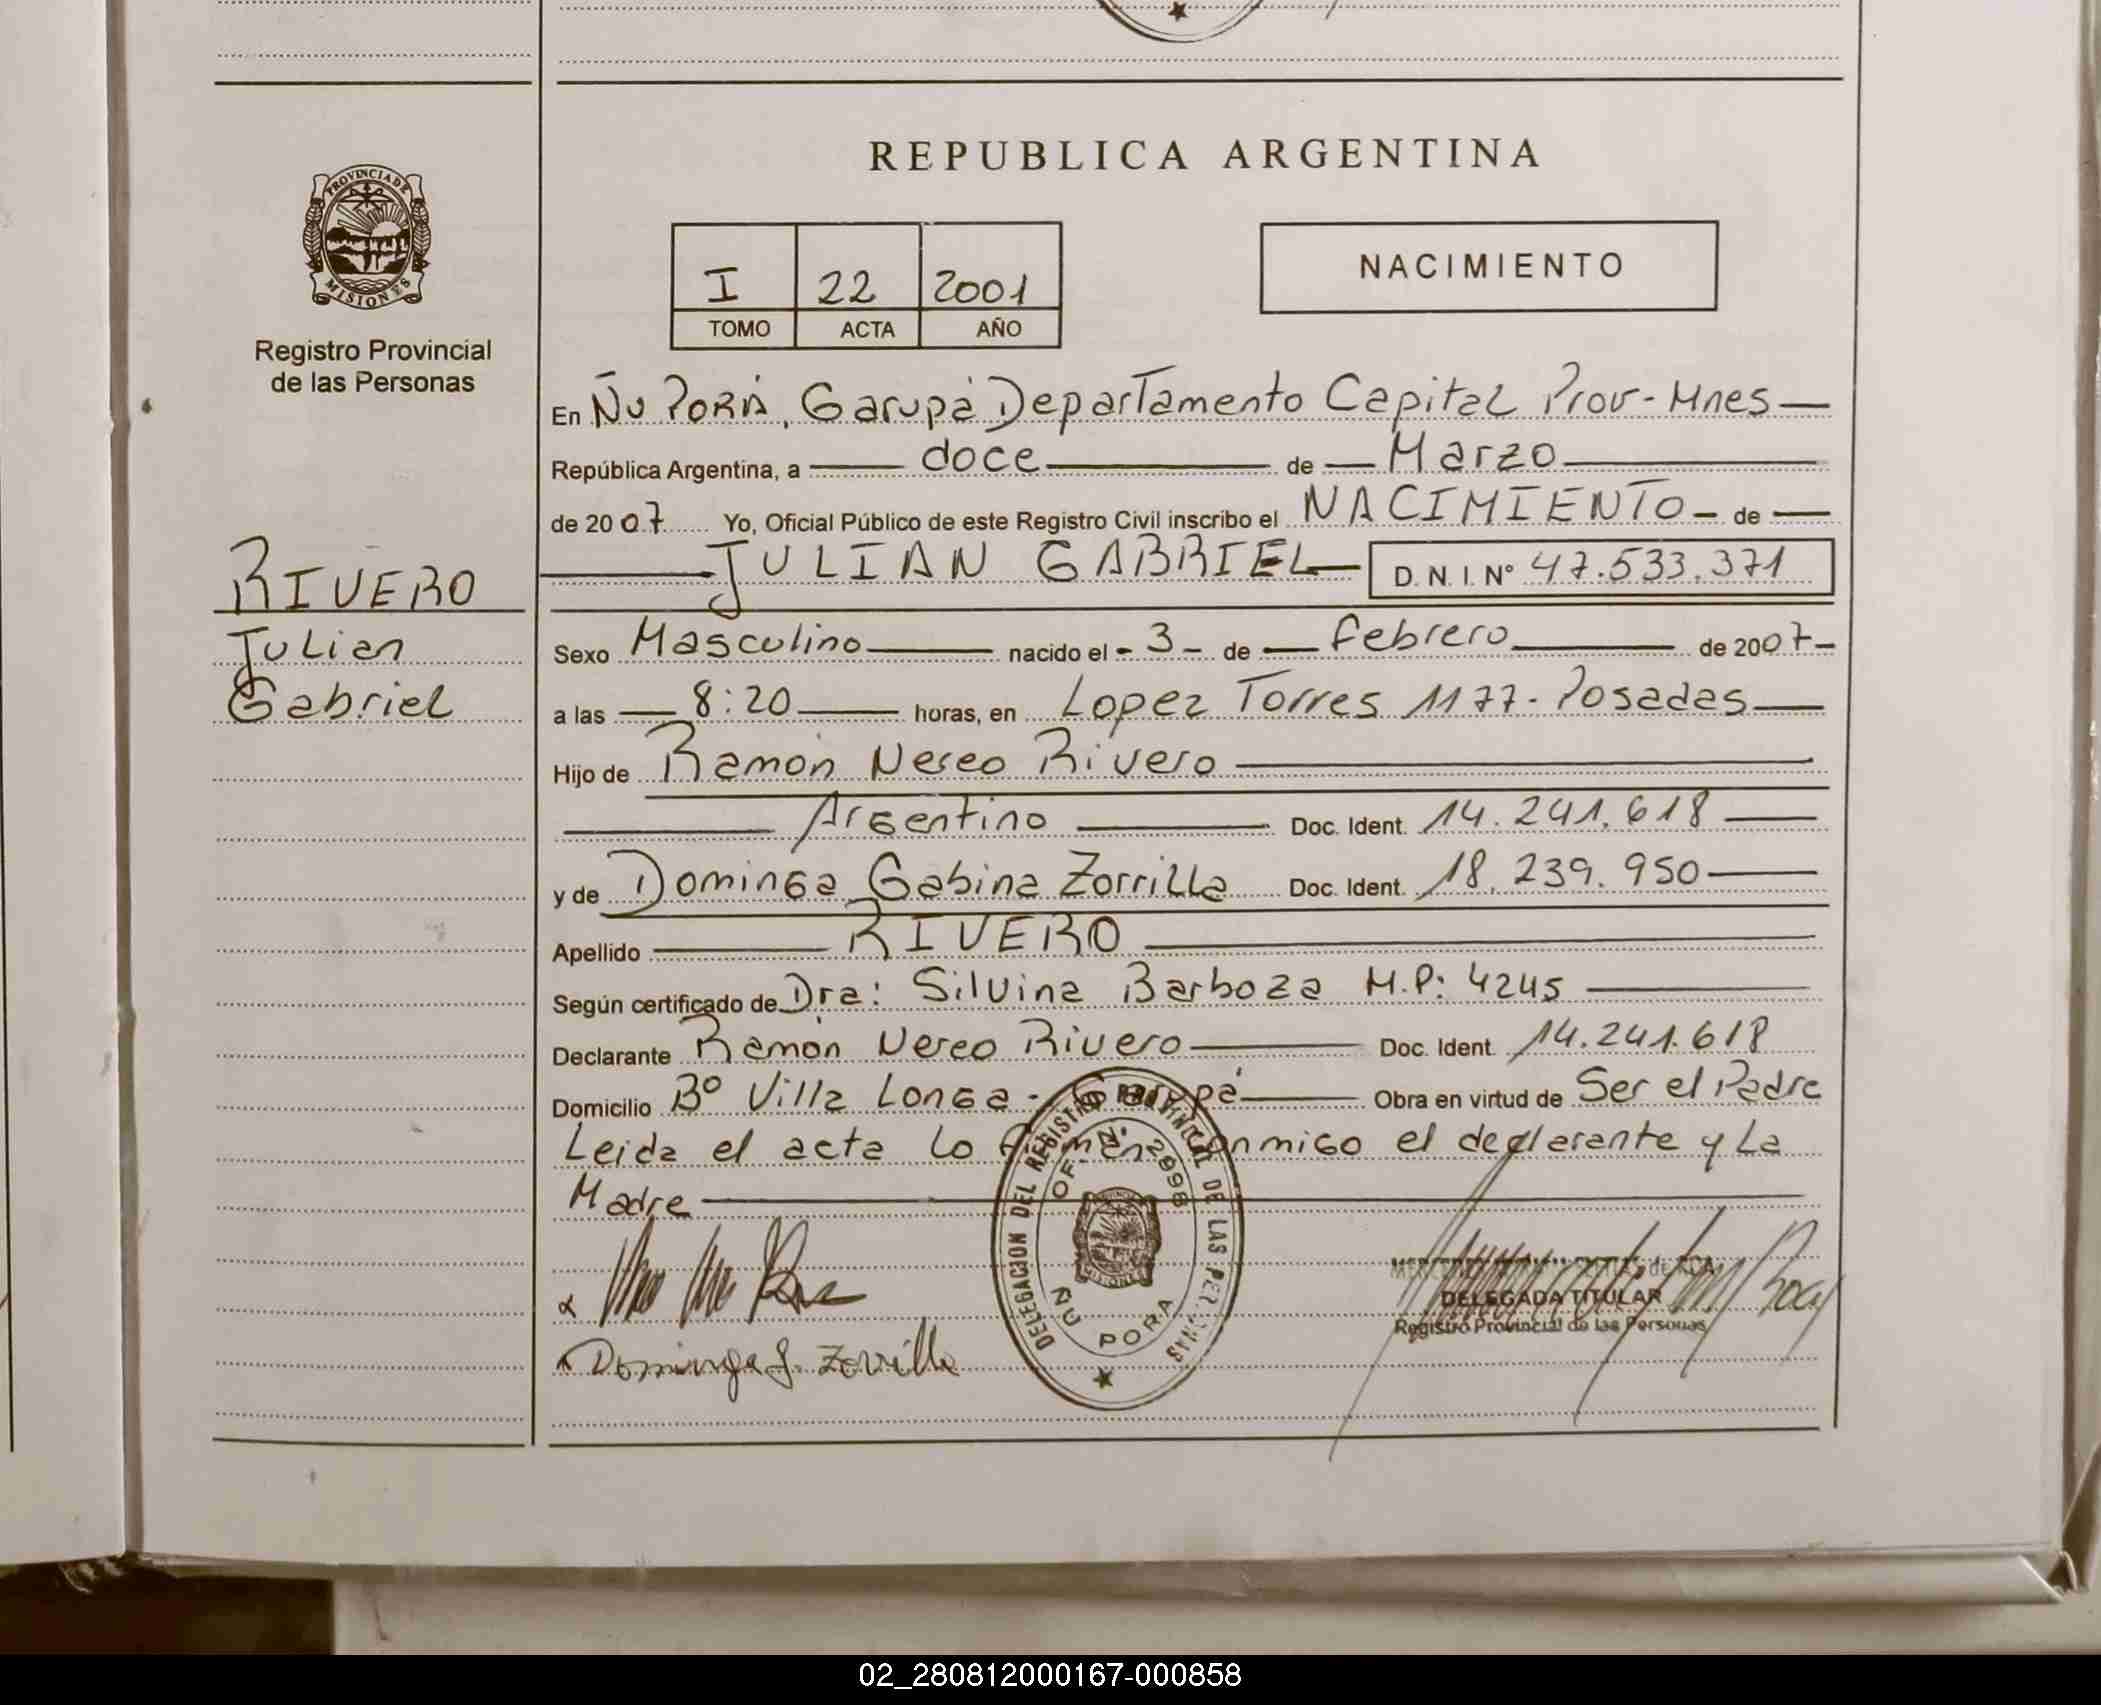 PROVINCIA DE
MISIONES
Registro Provincial
de las Personas
RIVERO
Julian
Gabriel
REPUBLICA ARGENTINA
I 22 2001
TOMO ACTA AÑO
NACIMIENTO
En Ñu Porá, Garupá Departamento Capital Prov-Mnes
República Argentina, a doce de Marzo
de 2007 Yo, Oficial Público de este Registro Civil inscribo el NACIMIENTO - de
JULIAN GABRIEL D. N. I. N° 47.533.371
Sexo Masculino nacido el - 3 - de febrero de 2007-
a las 8:20 horas, en Lopez Torres 1177- Posadas
Hijo de Ramón Nereo Rivero
Argentino Doc. Ident. 14.241.618
y de Dominga Gabina Zorrilla Doc. Ident. 18.239.950
Apellido RIVERO
Según certificado de Dra: Silvina Barboza M.P: 4245
Declarante Ramón Nereo Rivero Doc. Ident. 14.241.618
Domicilio B° Villa Longa - Garupá Obra en virtud de Ser el Padre
Leida el acta lo firman conmigo el declarante y La
Madre
DELEGACION DEL REGISTRO PROVINCIAL DE LAS PERSONAS
OF. N° 2998
ÑU PORA
Dominga G. Zorrilla
DELEGADA TITULAR
Registro Provincial de las Personas
02_280812000167-000858